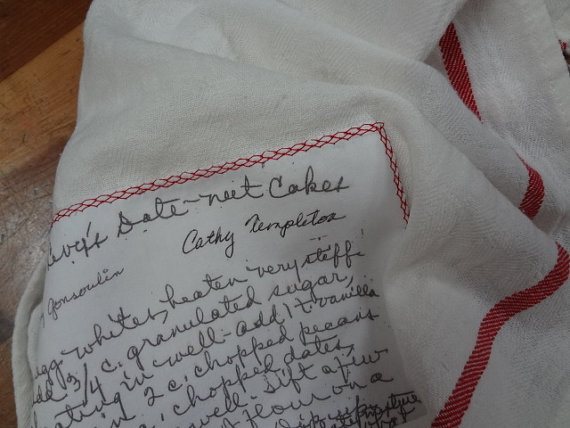 Date-nut Cakes
Cathy Templeton
Gonsoulin
egg whites, beaten very stiff
3/4 c. granulated sugar,
beating in well - add 1 t vanilla
2 c. chopped pecans
c. chopped dates,
well. Sift a few
flour on a